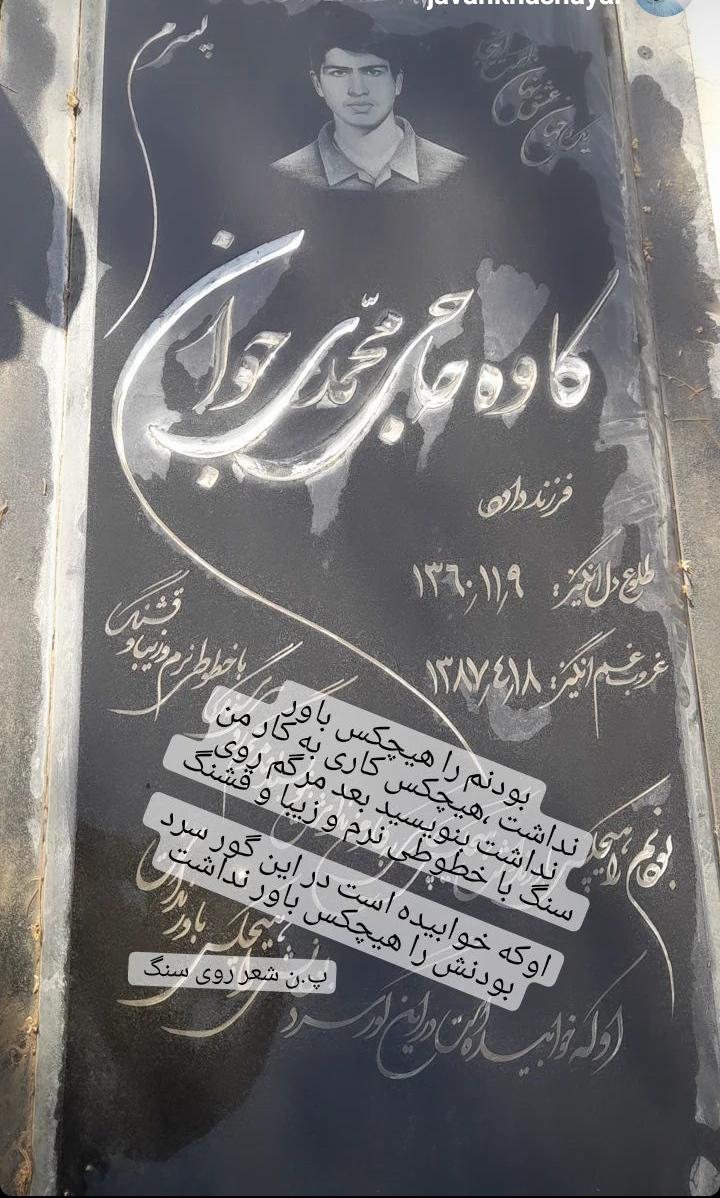 javankhashayar
پسرم
یک جهان
عشق نهان
است اینجا
کاوه حاجی محمدی جوان
فرزند داود
طلوع دل انگیز: ۱۳۶۰,۱۱,۹
غروب غم انگیز: ۱۳۸۷,٤,۱۸
با خطوطی نرم و زیبا و قشنگ
بودنم را هیچکس باور
نداشت ،هیچکس کاری به کار من
نداشت بنویسید بعد مرگم روی
سنگ با خطوطی نرم و زیبا و قشنگ
اوکه خوابیده است در این گور سرد
بودنش را هیچکس باور نداشت
پ.ن شعر روی سنگ
بودنم را هیچکس
باور نداشت
هیچکس
او که خوابیده است در این گور سرد